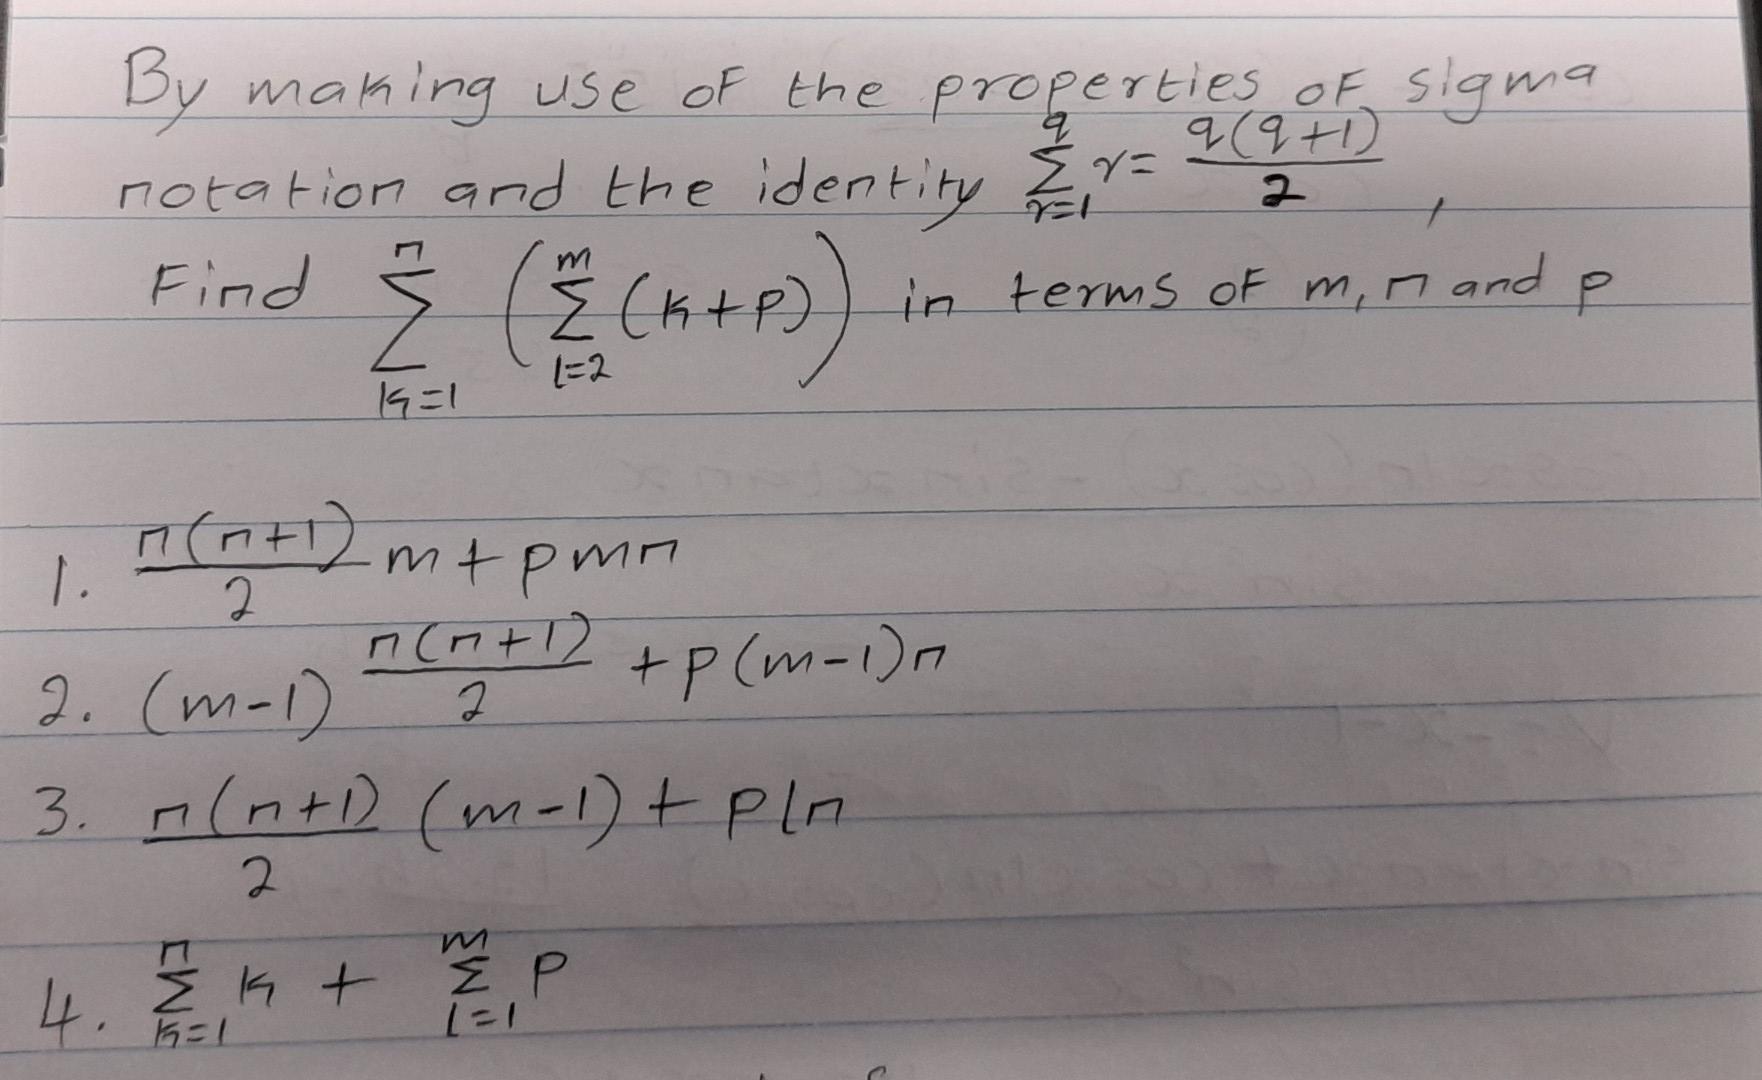 By making use of the properties of sigma
notation and the identity $\sum_{r=1}^{q} r = \frac{q(q+1)}{2}$,
Find $\sum_{k=1}^{n} \left( \sum_{l=2}^{m} (k+p) \right)$ in terms of m, n and p
1. $\frac{n(n+1)}{2} m + pmn$
2. $(m-1) \frac{n(n+1)}{2} + p(m-1)n$
3. $\frac{n(n+1)}{2} (m-1) + pln$
4. $\sum_{k=1}^{n} k + \sum_{l=1}^{m} p$